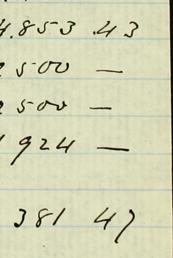 4.853 .43
2 500 —
2 500 —
1 924 —
381 47